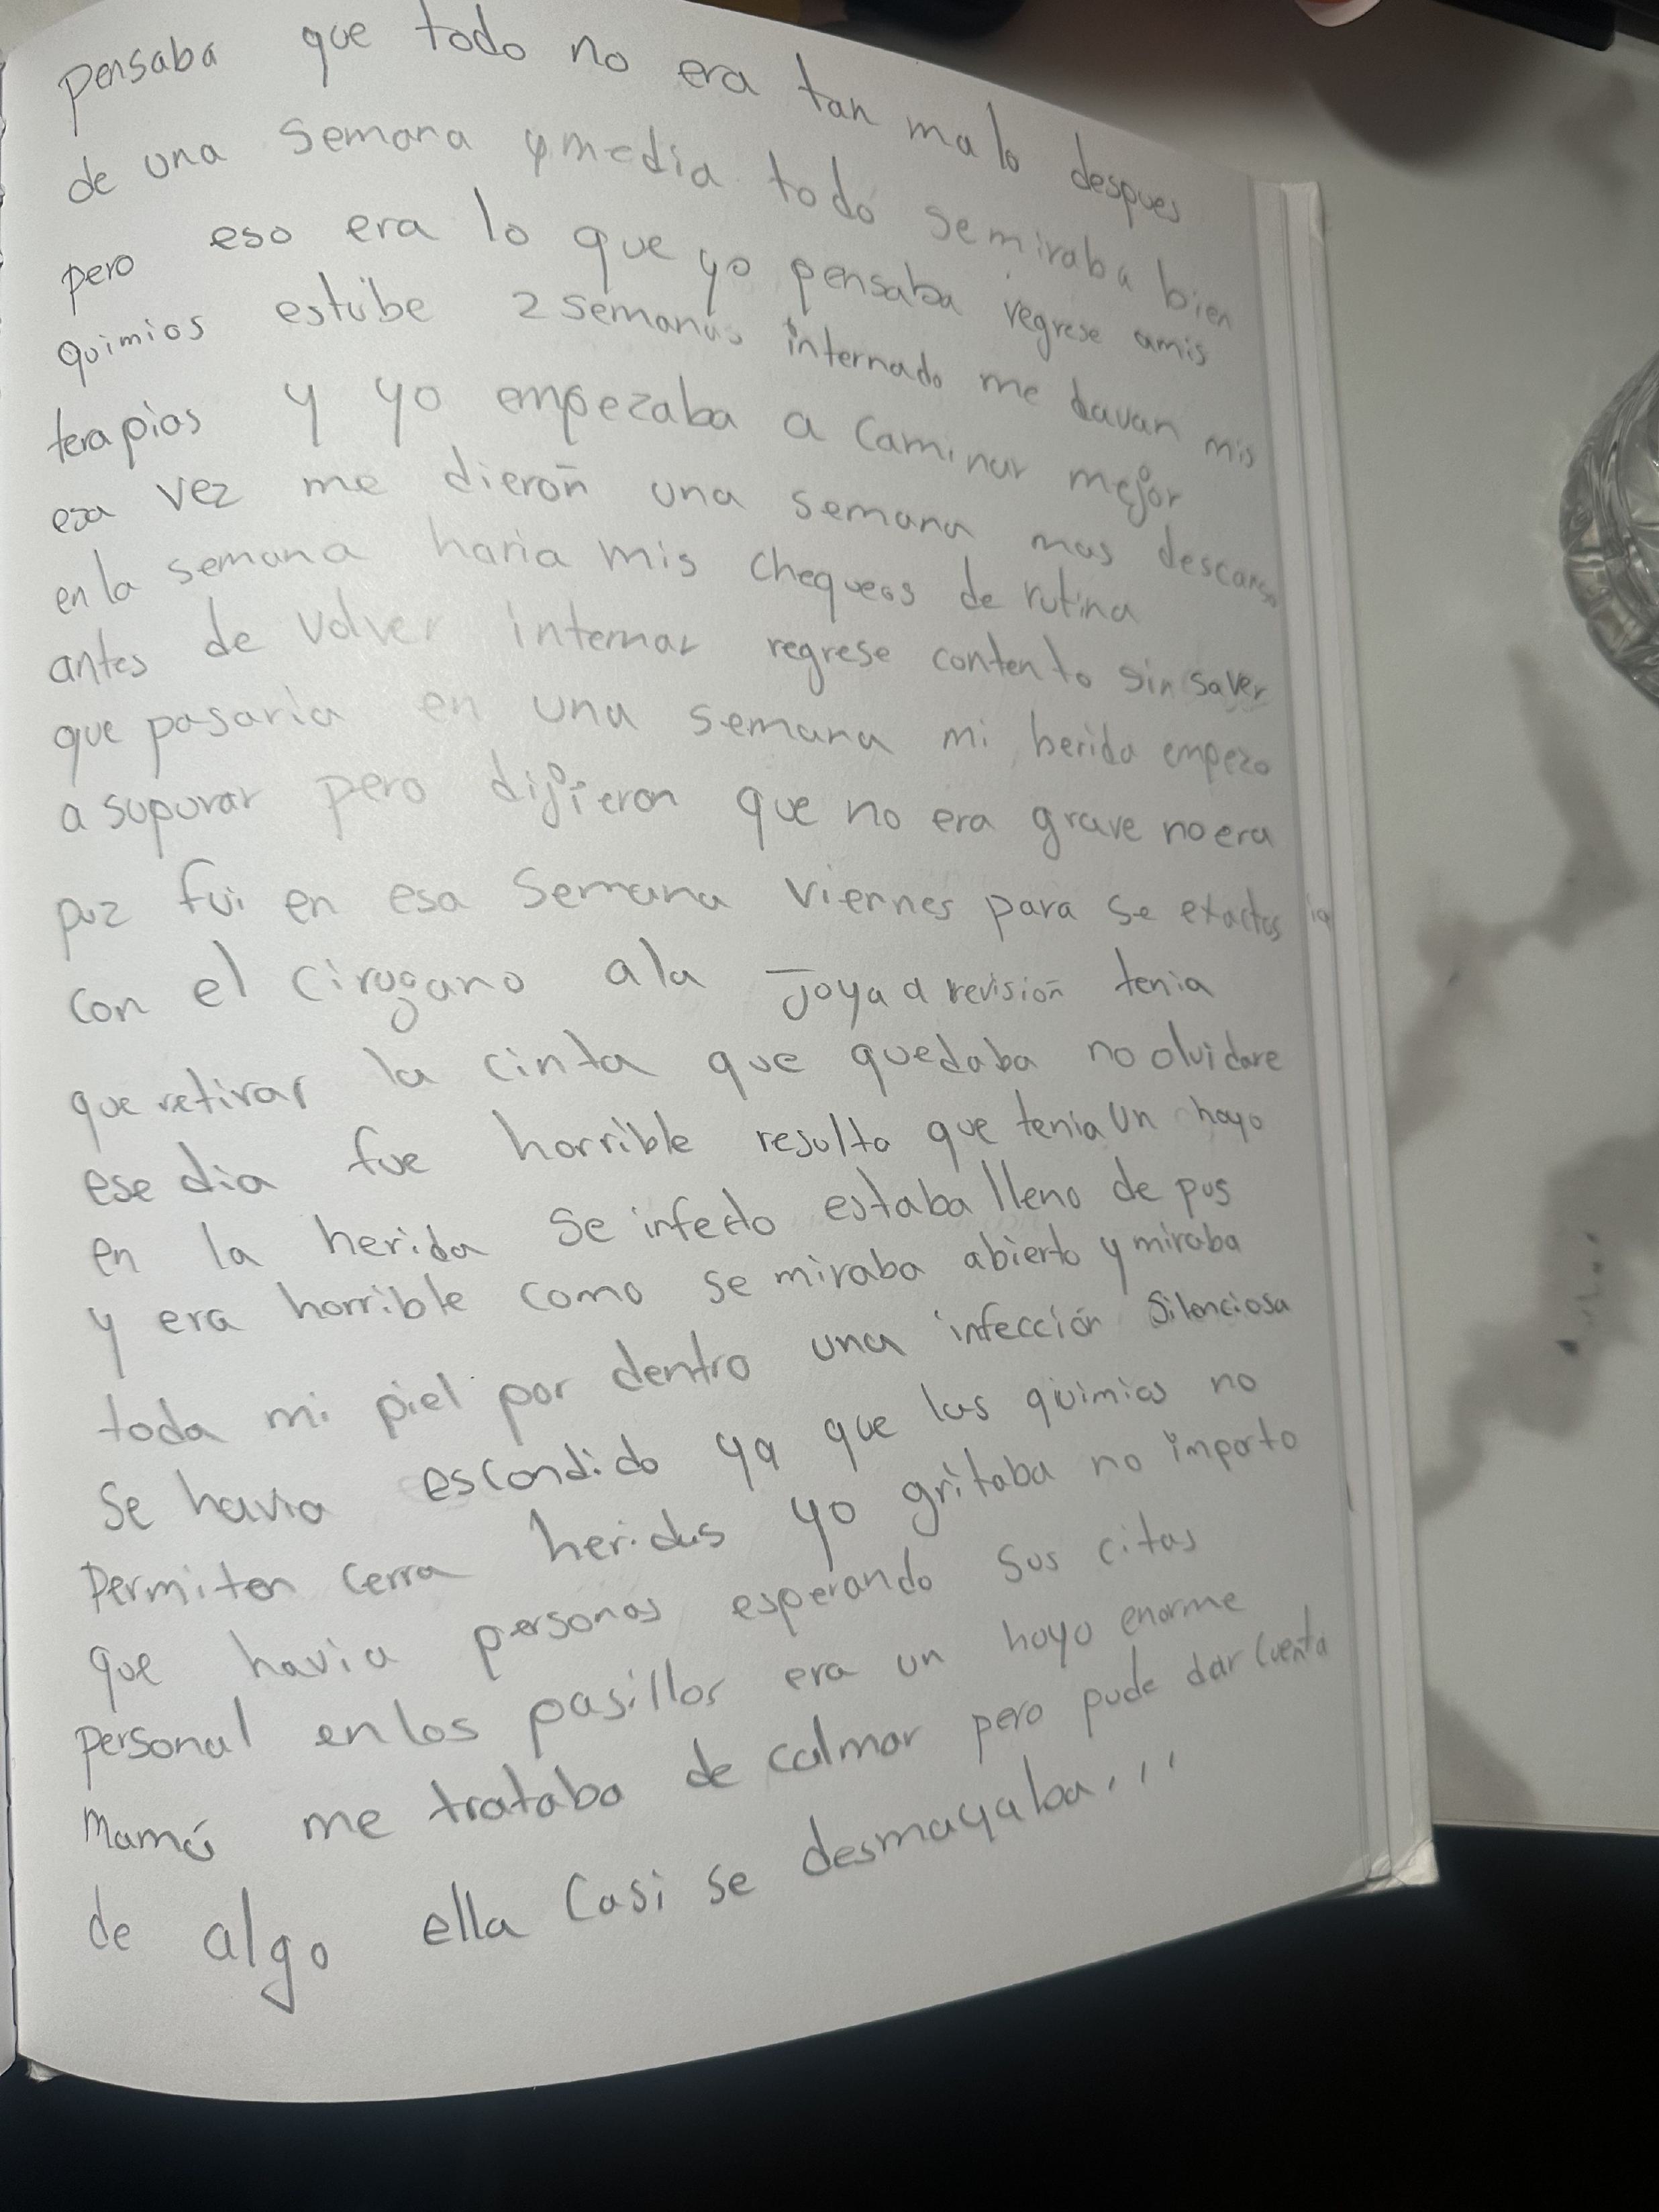 pensaba que todo no era tan malo despues
de una semana y media todo semiraba bien
pero eso era lo que yo pensaba regrese amis
quimios estube 2 semanas internado me davan mis
terapias y yo empezaba a caminar mejor
esa vez me dierón una semana mas descanso
en la semana haria mis chequeos de rutina
antes de volver internar regrese contento sin saver
que pasaria en una semana mi herida empezo
a supurar pero dijieron que no era grave no era
puz fui en esa semana viernes para se exactos
con el cirugano ala Joya a revisión tenia
que retirar la cinta que quedaba no olvidare
ese dia fue horrible resulto que tenia un hoyo
en la herida se infecto estaba lleno de pus
y era horrible como se miraba abierto y miraba
toda mi piel por dentro una infección silenciosa
se havia escondido ya que las quimios no
permiten cerra heridas yo gritaba no importo
que havia personas esperando sus citas
personal en los pasillos era un hoyo enorme
mamá me trataba de calmar pero pude dar cuenta
de algo ella casi se desmayaba...